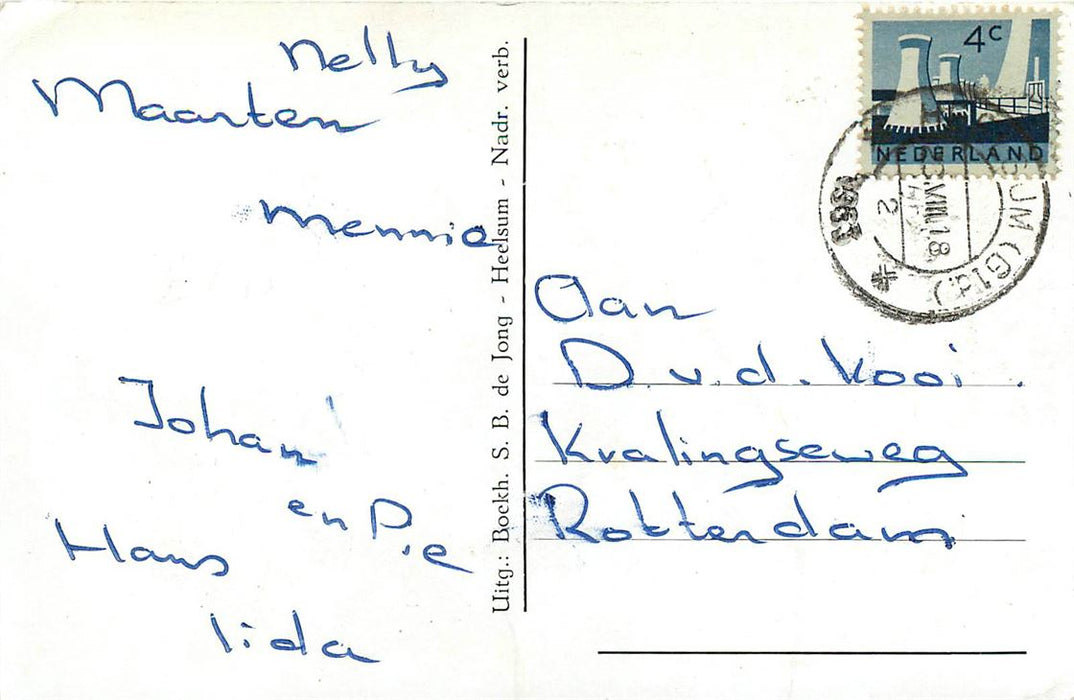 Nelly
Maarten
Mennie
Johan
en Pie
Hans
lida
Uitg.: Boekh. S. B. de Jong - Heelsum - Nadr. verb.
4c
NEDERLAND
1963
Aan
D. v. d. Kooi.
Kralingseweg
Rotterdam